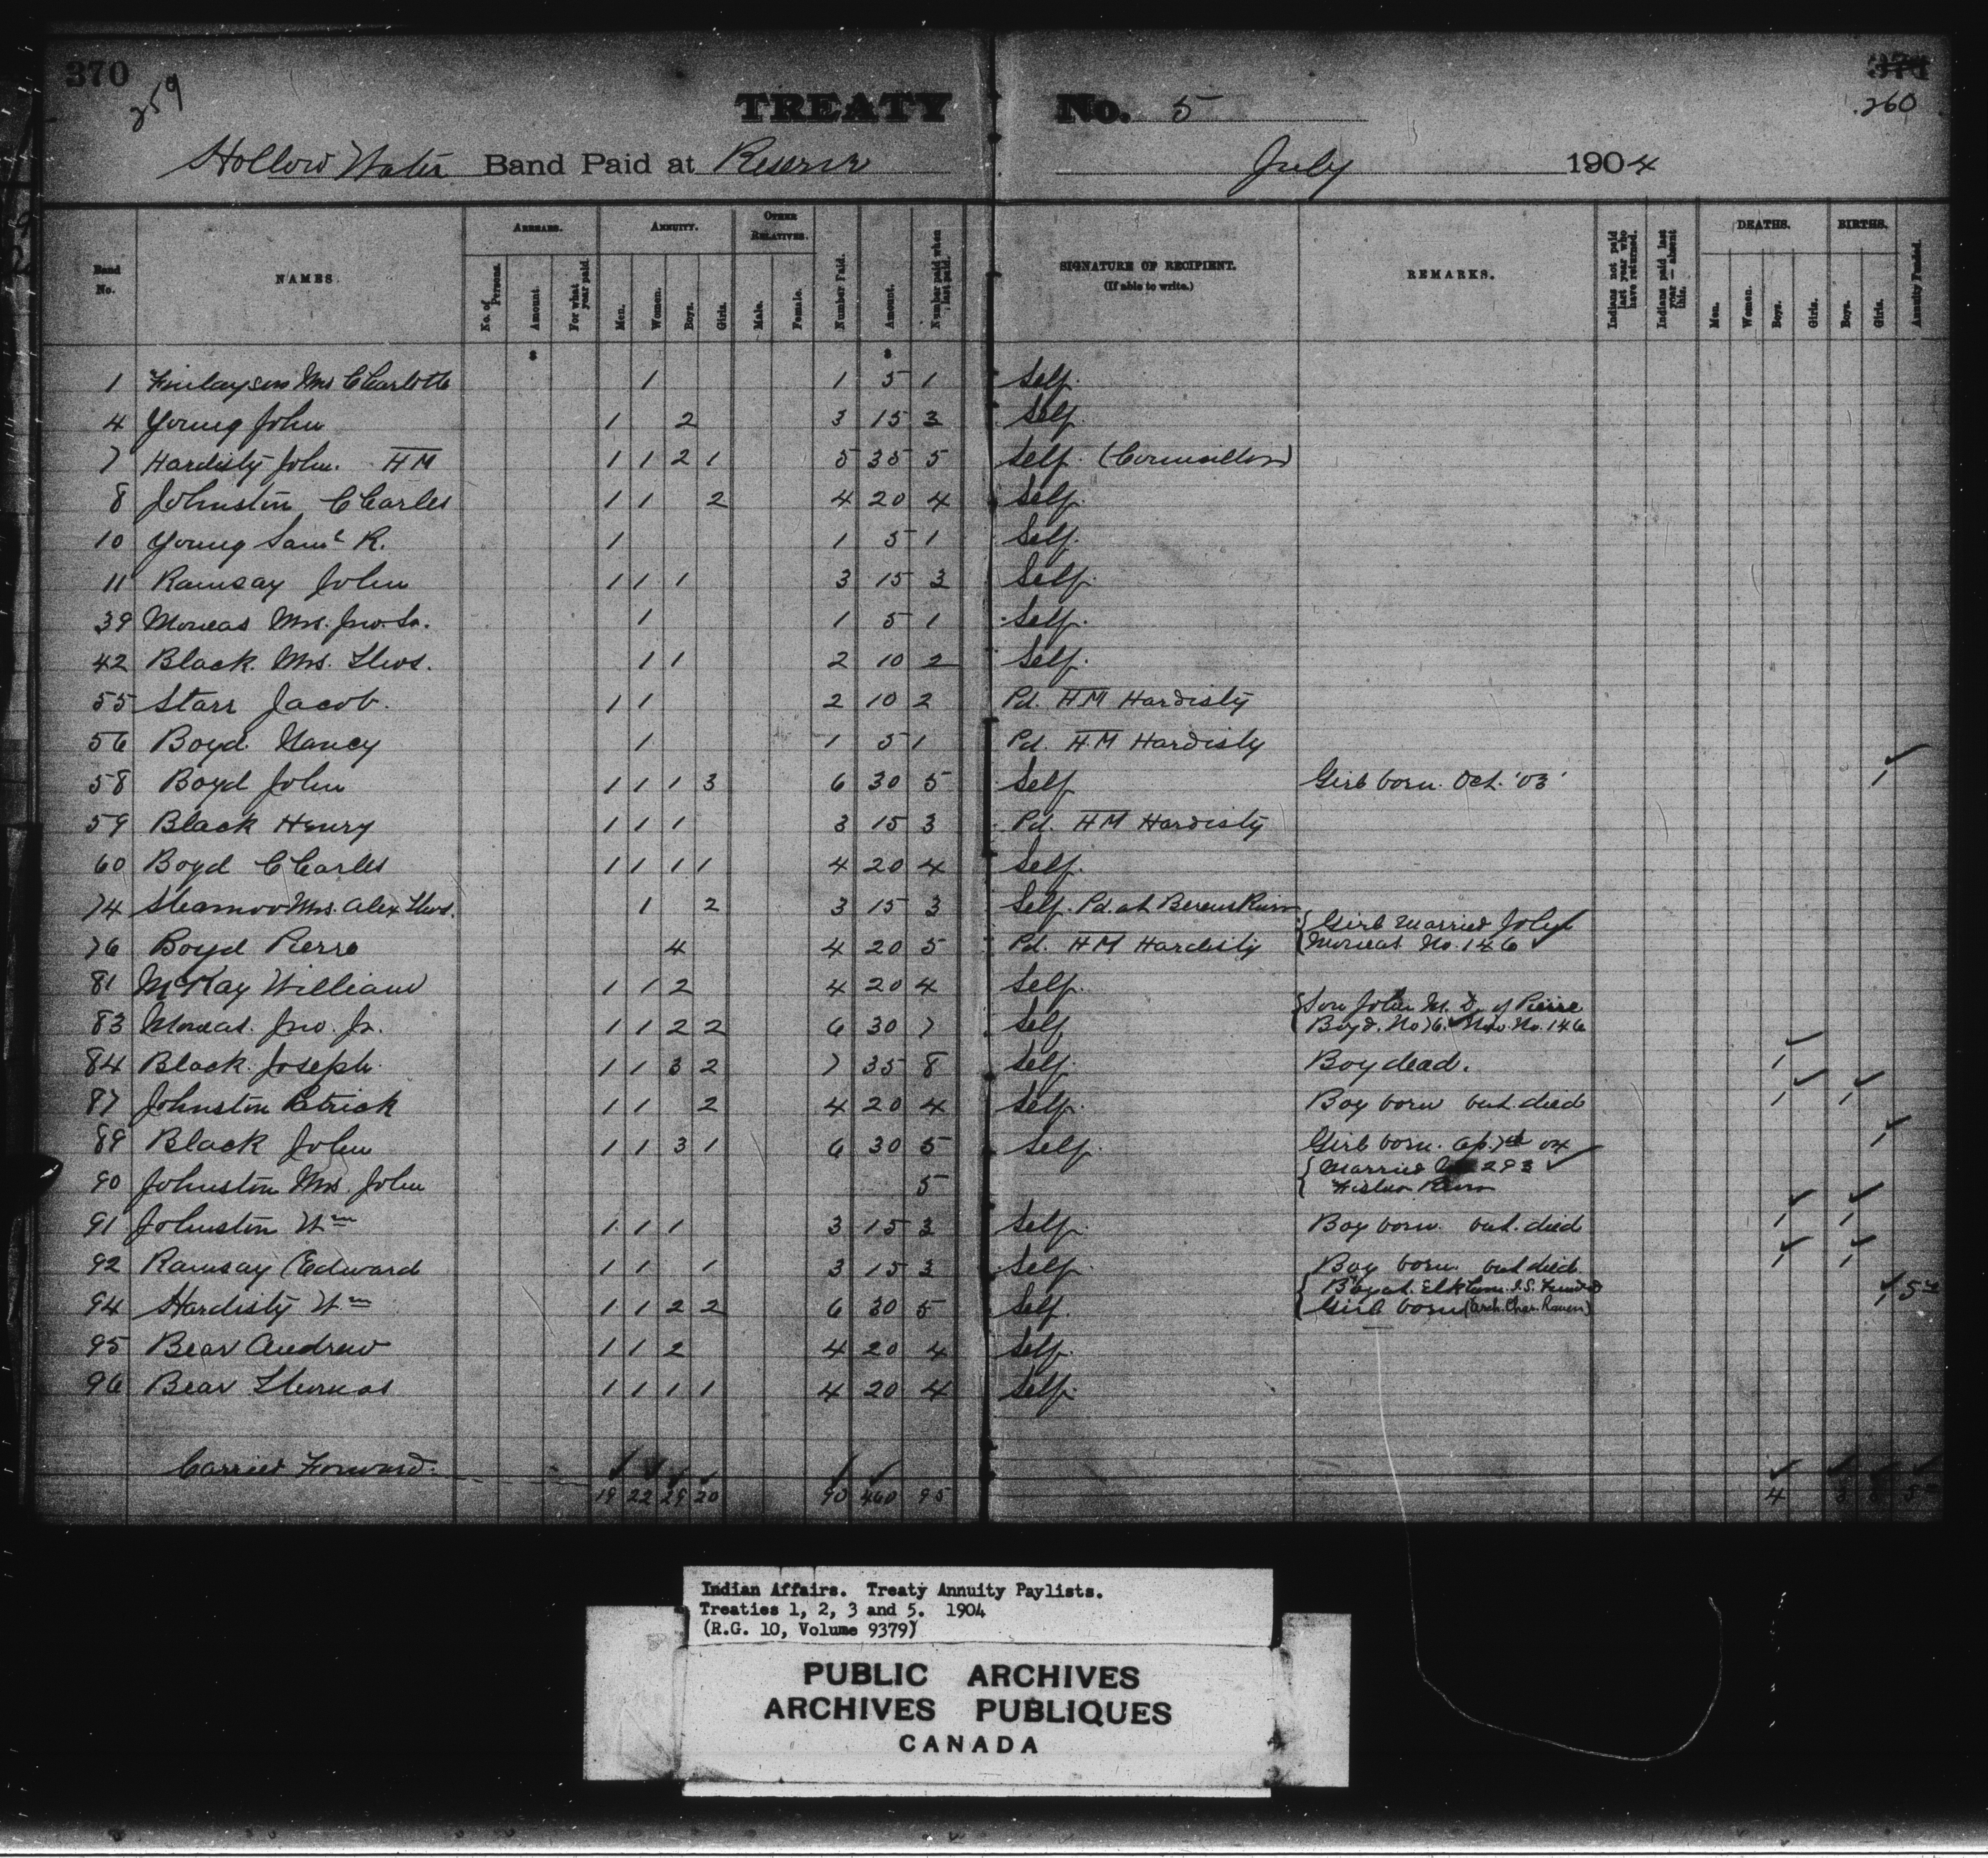 370
259
260
TREATY No. 5
Hollow Water Band Paid at Reserve July 1904
Band No. NAMES. ARREARS. ANNUITY. OTHER RELATIVES. Number Paid. Amount. Number paid when last paid. SIGNATURE OF RECIPIENT. (If able to write.) REMARKS. Indians not paid last year who have returned. Indians paid last year — absent this. DEATHS. BIRTHS. Annuity Funded.
No. of Persons. Amount. For what year paid. Men. Women. Boys. Girls. Male. Female. Men. Women. Boys. Girls. Boys. Girls.
$ $
1 Finlayson Mrs Charlotte 1 1 5 1 Self.
4 Young John 1 2 3 15 3 Self.
7 Hardisty John. HM 1 1 2 1 5 35 5 Self. (Councillor)
8 Johnston Charles 1 1 2 4 20 4 Self.
10 Young Saml R. 1 1 5 1 Self.
11 Ramsay John 1 1 1 3 15 3 Self.
39 Moneas Mrs. Jno. Sr. 1 1 5 1 Self.
42 Black. Mrs. Thos. 1 1 2 10 2 Self.
55 Starr Jacob. 1 1 2 10 2 Pd. HM Hardisty
56 Boyd Nancy 1 1 5 1 Pd. HM Hardisty
58 Boyd John 1 1 1 3 6 30 5 Self Girl born. Oct. '03' 1
59 Black Henry 1 1 1 3 15 3 Pd. HM Hardisty
60 Boyd Charles 1 1 1 1 4 20 4 Self.
74 Mrs. Alex Thos. 1 2 3 15 3 Self. Pd. at Berens River
76 Boyd Pierre 4 4 20 5 Pd. HM Hardisty { Girl married John Moneas No. 146 ✓
81 McKay William 1 1 2 4 20 4 Self.
83 Moneas. Jno. Jr. 1 1 2 2 6 30 7 Self { Son John M. D. of Pierre Boyd. No 76. Now No. 146
84 Black. Joseph. 1 1 3 2 7 35 8 Self. Boy dead. 1
87 Johnston Patrick 1 1 2 4 20 4 Self. Boy born but died 1 1
89 Black John 1 1 3 1 6 30 5 Self. Girl born. Ap. 7th 04 1
90 Johnston Mrs. John 5 { Married 293 ✓ Fisher River
91 Johnston Wm 1 1 1 3 15 3 Self. Boy born. but died 1 1
92 Ramsay Edward 1 1 1 3 15 3 Self. Boy born but died. 1 1
94 Hardisty Wm 1 1 2 2 6 30 5 Self. { Boy at Elkhorn I.S. Funded Girl born (Arch. Chas. Raven) 1 5 00
95 Bear Andrew 1 1 2 4 20 4 Self.
96 Bear Thomas 1 1 1 1 4 20 4 Self.
Carried Forward. 19 22 29 20 90 460 95 4
Indian Affairs. Treaty Annuity Paylists.
Treaties 1, 2, 3 and 5. 1904
(R.G. 10, Volume 9379)
PUBLIC ARCHIVES
ARCHIVES PUBLIQUES
CANADA